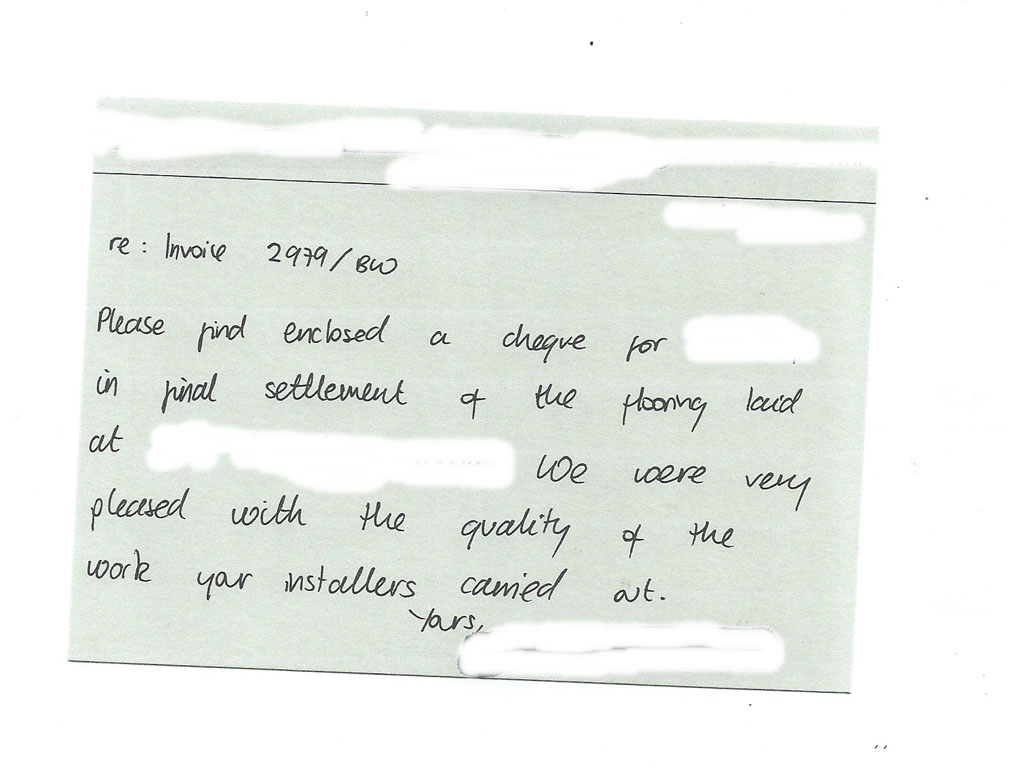 re: Invoice 2979/BW
Please find enclosed a cheque for
in final settlement of the flooring laid
at We were very
pleased with the quality of the
work your installers carried out.
Yours,